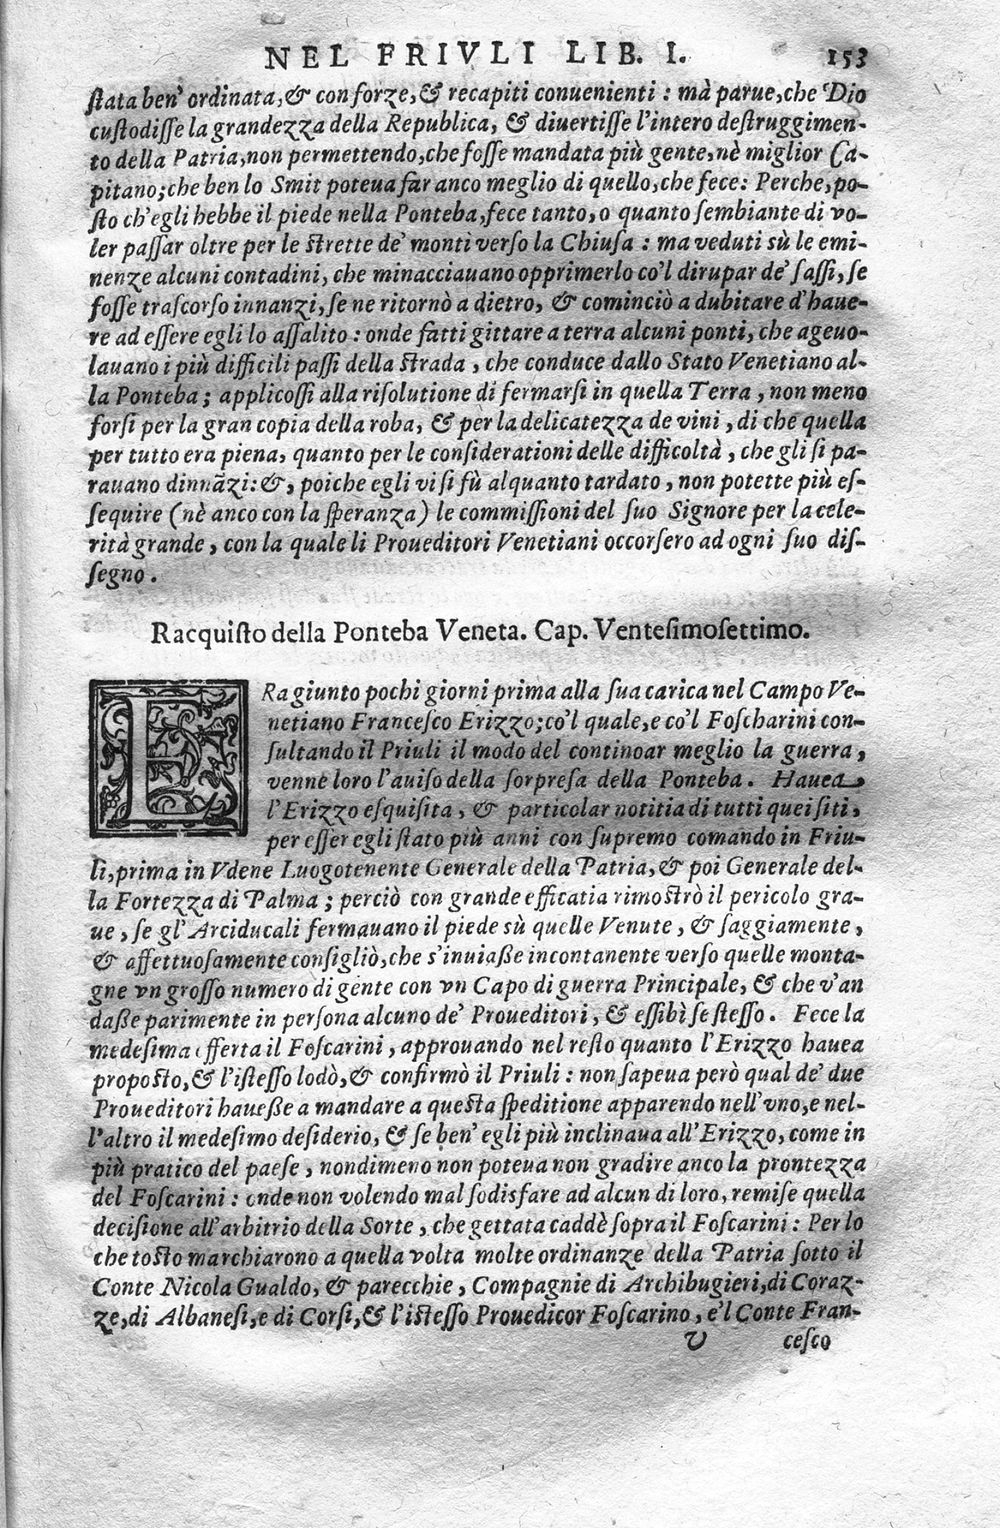 NEL FRIVLI LIB. I. 153
ſtata ben' ordinata, & con forze, & recapiti conuenienti : mà parue, che Dio
cuſtodiſſe la grandezza della Republica, & diuertiſſe l'intero deſtruggimen-
to della Patria, non permettendo, che foſſe mandata più gente, nè miglior Ca-
pitano; che ben lo Smit poteua far anco meglio di quello, che fece: Perche, po-
ſto ch'egli hebbe il piede nella Ponteba, fece tanto, o quanto ſembiante di vo-
ler paſſar oltre per le ſtrette de' monti verſo la Chiuſa : ma veduti sù le emi-
nenze alcuni contadini, che minacciauano opprimerlo co'l dirupar de' ſaſſi, ſe
foſſe traſcorſo innanzi, ſe ne ritornò a dietro, & cominciò a dubitare d'haue-
re ad eſſere egli lo aſſalito : onde fatti gittare a terra alcuni ponti, che ageuo-
lauano i più difficili paſſi della ſtrada, che conduce dallo Stato Venetiano al-
la Ponteba; applicoſſi alla riſolutione di fermarſi in quella Terra, non meno
forſi per la gran copia della roba, & per la delicatezza de vini, di che quella
per tutto era piena, quanto per le conſiderationi delle difficoltà, che gli ſi pa-
rauano dinnãzi: &, poiche egli vi ſi fù alquanto tardato, non potette più eſ-
ſequire (nè anco con la ſperanza) le commiſſioni del ſuo Signore per la cele-
rità grande, con la quale li Proueditori Venetiani occorſero ad ogni ſuo diſ-
ſegno.
Racquiſto della Ponteba Veneta. Cap. Venteſimoſettimo.
ERa giunto pochi giorni prima alla ſua carica nel Campo Ve-
netiano Franceſco Erizzo; co'l quale, e co'l Foſcharini con-
ſultando il Priuli il modo del continoar meglio la guerra,
venne loro l'auiſo della ſorpreſa della Ponteba. Hauea
l'Erizzo eſquiſita, & particolar notitia di tutti quei ſiti,
per eſſer egli ſtato più anni con ſupremo comando in Friu-
li, prima in Vdene Luogotenente Generale della Patria, & poi Generale del-
la Fortezza di Palma; perciò con grande efficatia rimoſtrò il pericolo gra-
ue, ſe gl'Arciducali fermauano il piede sù quelle Venute, & ſaggiamente,
& affettuoſamente conſigliò, che s'inuiaße incontanente verſo quelle monta-
gne vn groſſo numero di gente con vn Capo di guerra Principale, & che v'an
daße parimente in perſona alcuno de' Proueditori, & eſſibì ſe ſteſſo. Fece la
medeſima offerta il Foſcarini, approuando nel reſto quanto l'Erizzo hauea
propoſto, & l'iſteſſo lodò, & confirmò il Priuli : non ſapeua però qual de' due
Proueditori haueße a mandare a queſta ſpeditione apparendo nell'vno, e nel-
l'altro il medeſimo deſiderio, & ſe ben' egli più inclinaua all'Erizzo, come in
più pratico del paeſe, nondimeno non poteua non gradire anco la prontezza
del Foſcarini : onde non volendo mal ſodisfare ad alcun di loro, remiſe quella
deciſione all'arbitrio della Sorte, che gettata caddè ſopra il Foſcarini : Per lo
che toſto marchiarono a quella volta molte ordinanze della Patria ſotto il
Conte Nicola Gualdo, & parecchie, Compagnie di Archibugieri, di Coraz-
ze, di Albaneſi, e di Corſi, & l'iſteſſo Prouedicor Foſcarino, e'l Conte Fran-
V ceſco